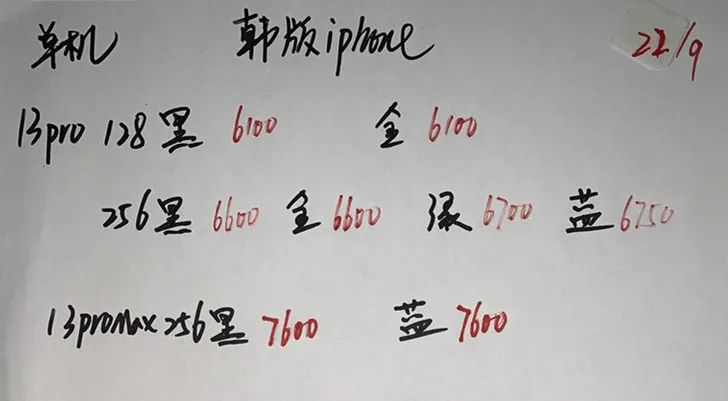 单机 韩版iphone 22/9
13pro 128黑 6100 金 6100
256黑 6600 金 6600 绿 6700 蓝 6750
13promax 256黑 7600 蓝 7600